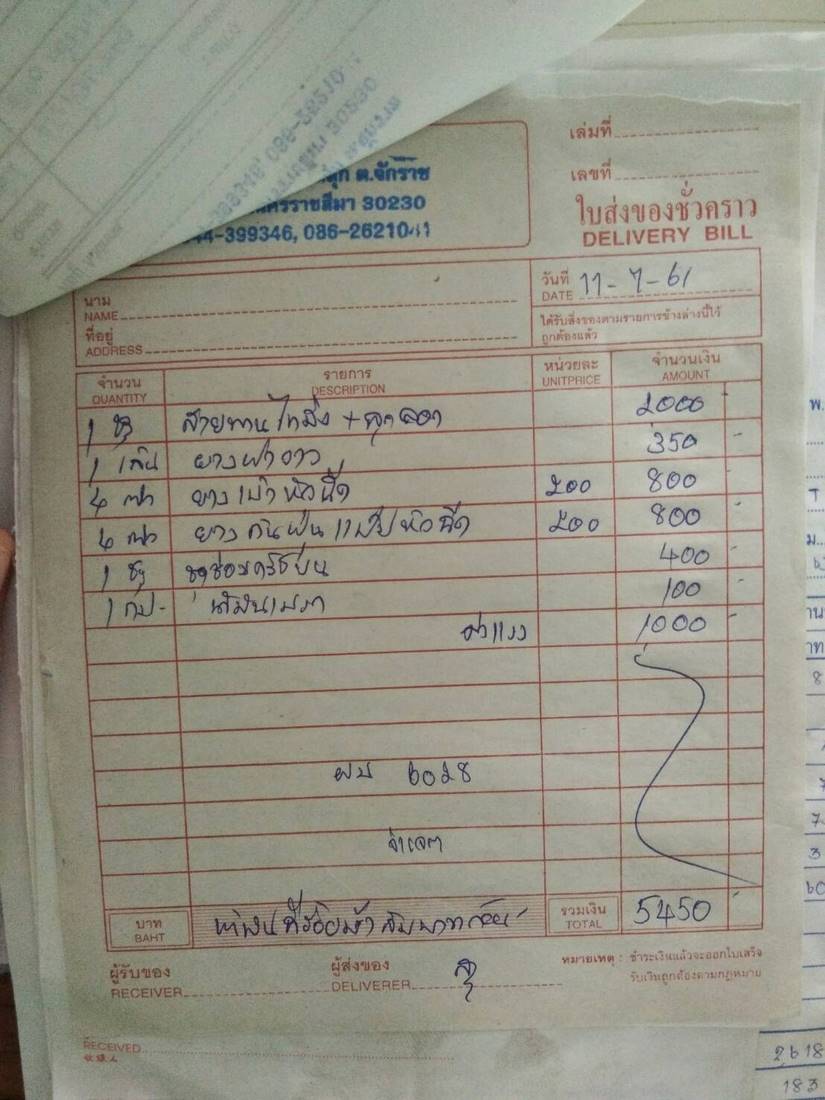 เล่มที่
เลขที่
ต.จักราช
นครราชสีมา 30230
044-399346, 086-2621041
ใบส่งของชั่วคราว
DELIVERY BILL
นาม
NAME
ที่อยู่
ADDRESS
วันที่
DATE 11-7-61
ได้รับสิ่งของตามรายการข้างล่างนี้ไว้
ถูกต้องแล้ว
จำนวน รายการ หน่วยละ จำนวนเงิน
QUANTITY DESCRIPTION UNITPRICE AMOUNT
1 ชุด สายพานไทมิ่ง + ลูกลอก 2000 -
1 เส้น ยางฝาวาว 350 -
4 ตัว ยางเบ้าหัวฉีด 200 800 -
4 ตัว ยางกันฝุ่นแป๊ปหัวฉีด 200 800 -
1 ชุด ชุดซ่อม 400 -
1 100 -
ค่าแรง 1000 -
6028
บาท ห้าพันสี่ร้อยห้าสิบบาทถ้วน รวมเงิน 5450 -
BAHT TOTAL
ผู้รับของ ผู้ส่งของ หมายเหตุ : ชำระเงินแล้วจะออกใบเสร็จ
RECEIVER DELIVERER รับเงินถูกต้องตามกฎหมาย
RECEIVED
2618
183